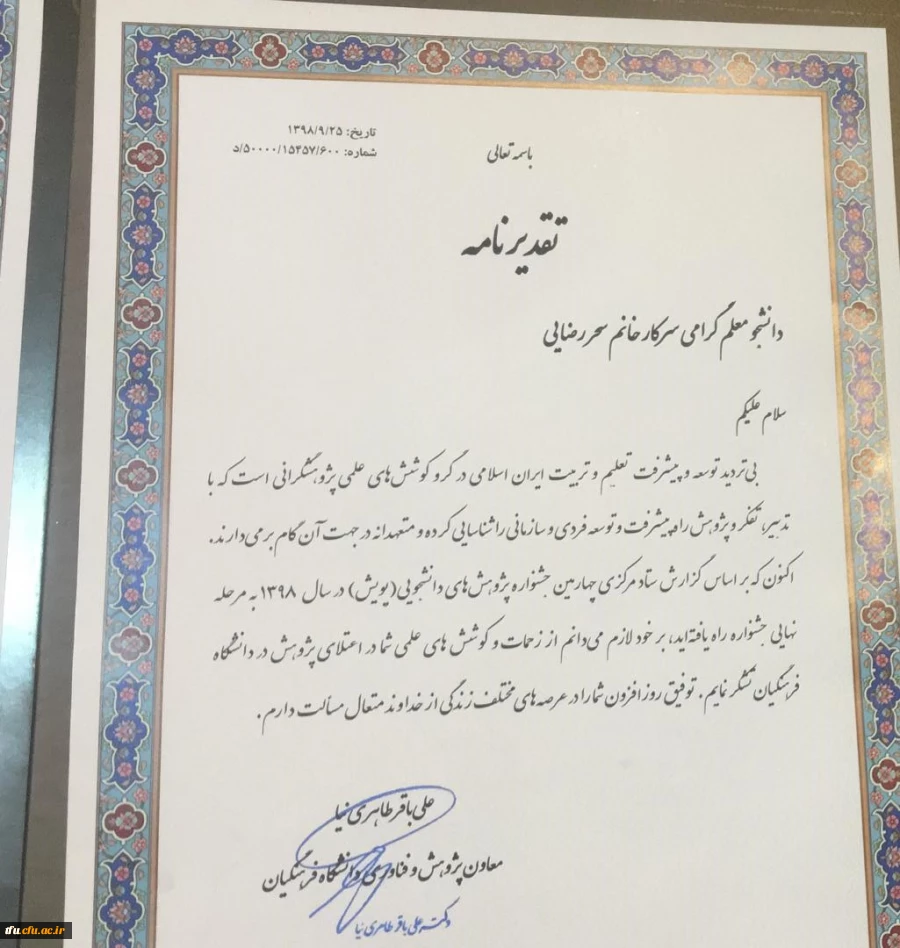 تاریخ: ۱۳۹۸/۹/۲۵
شماره: ۵۰۰۰۰/۱۵۴۵۷/۶۰۰/د
باسمه تعالی
تقدیرنامه
دانشجو معلم گرامی سرکار خانم سحر رضایی
سلام علیکم
بی‌تردید توسعه و پیشرفت تعلیم و تربیت ایران اسلامی در گرو کوشش‌های علمی پژوهشگرانی است که با
تدبیر، تفکر و پژوهش راه پیشرفت و توسعه فردی و سازمانی را شناسایی کرده و متعهدانه در جهت آن گام برمی‌دارند.
اکنون که بر اساس گزارش ستاد مرکزی چهارمین جشنواره پژوهش‌های دانشجویی (پویش) در سال ۱۳۹۸ به مرحله
نهایی جشنواره راه یافته‌اید، بر خود لازم می‌دانم از زحمات و کوشش های علمی شما در اعتلای پژوهش در دانشگاه
فرهنگیان تشکر نمایم. توفیق روزافزون شما را در عرصه های مختلف زندگی از خداوند متعال مسألت دارم.
علی باقر طاهری نیا
معاون پژوهش و فناوری دانشگاه فرهنگیان
دکتر علی باقر طاهری نیا
tfu.cfu.ac.ir